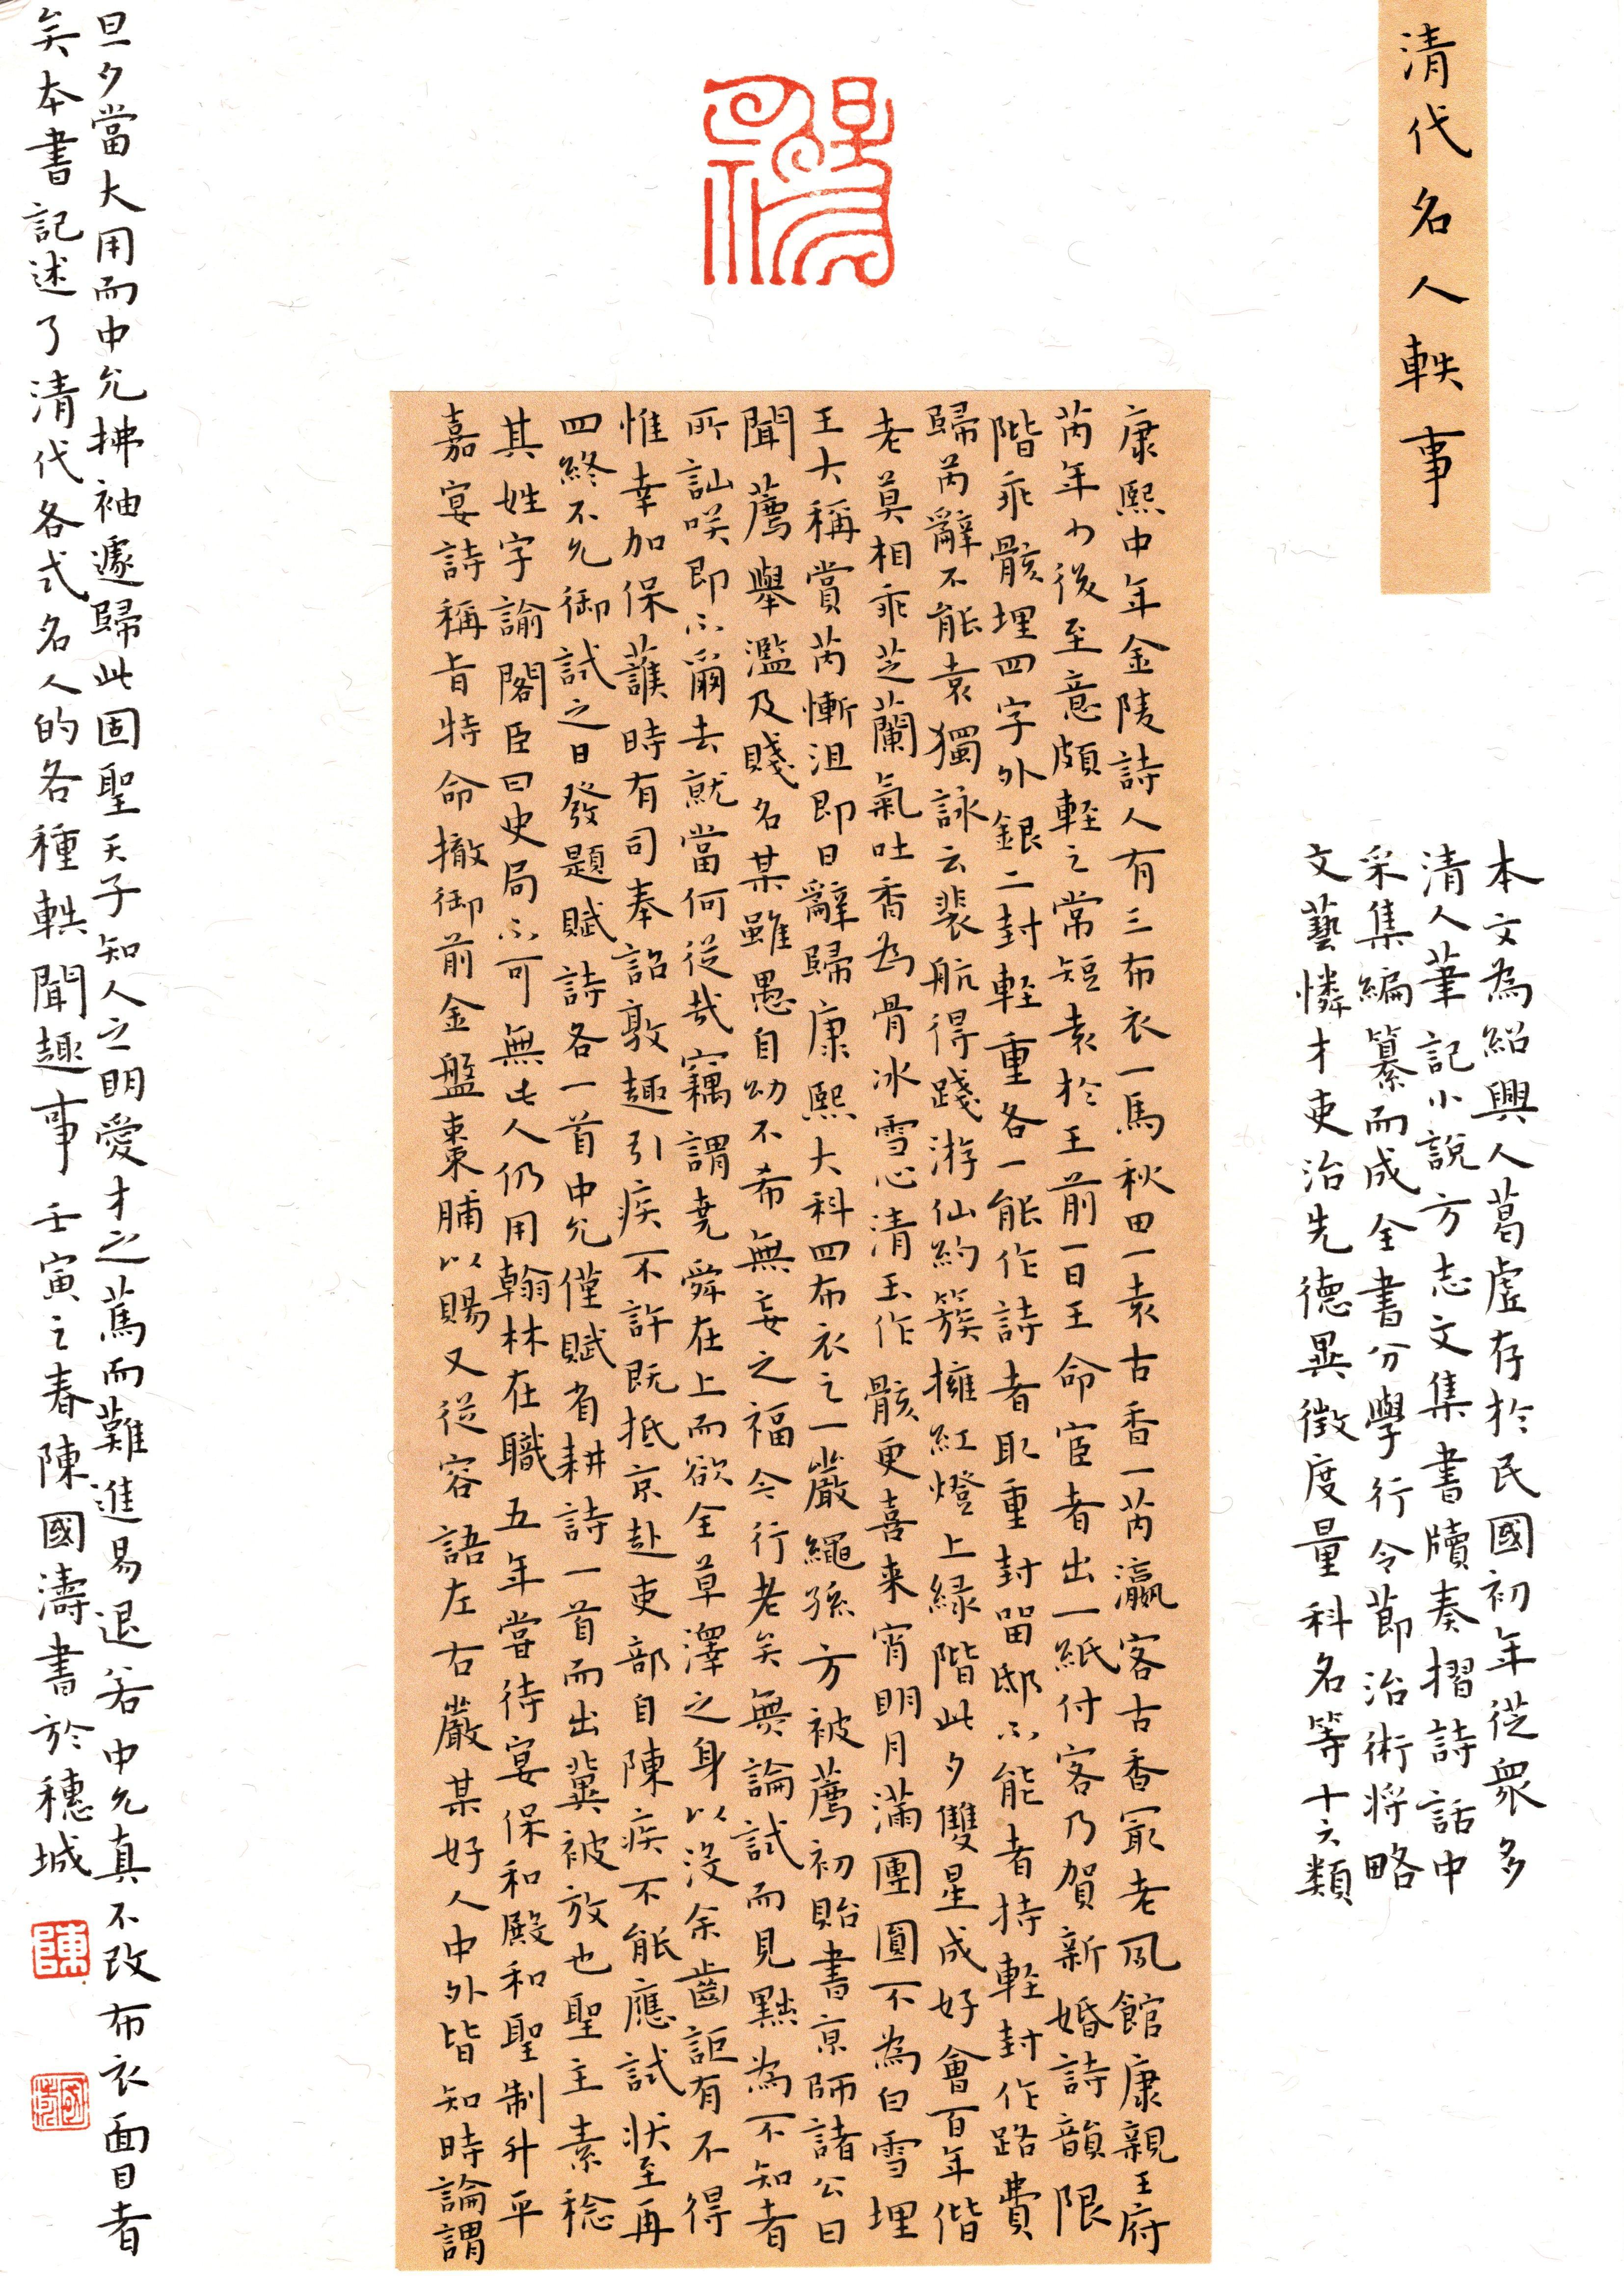 清代名人軼事
本文為紹興人葛虛存於民國初年從眾多
清人筆記小說方志文集書牘奏摺詩話中
采集編纂而成全書分學行令節治術將略
文藝憐才吏治先德異徵度量科名等十六類
康熙中年金陵詩人有三布衣一馬秋田一袁古香一芮瀛客古香最老夙館康親王府
芮年少後至意頗輕之常短袁於王前一日王命宦者出一紙付客乃賀新婚詩韻限
階乖骸埋四字外銀二封輕重各一能作詩者取重封留邸不能者持輕封作路費
歸芮辭不能袁獨詠云裴航得踐游仙約簇擁紅燈上綠階此夕雙星成好會百年偕
老莫相乖芝蘭氣吐香為骨冰雪心清玉作骸更喜来宵明月滿團圓不為白雪埋
王大稱賞芮慚沮即日辭歸康熙大科四布衣之一嚴繩孫方被薦初貽書京師諸公曰
聞薦舉濫及賤名某雖愚自幼不希無妄之福今行老矣無論試而見黜為不知者
所訕咲即不爾去就當何從哉竊謂堯舜在上而欲全草澤之身以沒余齒詎有不得
惟幸加保護時有司奉詔敦趣引疾不許既抵京赴吏部自陳疾不能應試狀至再
四終不允御試之日發題賦詩各一首中允僅賦省耕詩一首而出冀被放也聖主素稔
其姓字諭閣臣曰史局不可無此人仍用翰林在職五年嘗待宴保和殿和聖制升平
嘉宴詩稱旨特命撤御前金盤棗脯以賜又從容語左右嚴某好人中外皆知時論謂
旦夕當大用而中允拂袖遽歸此固聖天子知人之明愛才之篤而難進易退若中允真不改布衣面目者
矣本書記述了清代各式名人的各種軼聞趣事 壬寅之春陳國濤書於穗城
陳
國濤